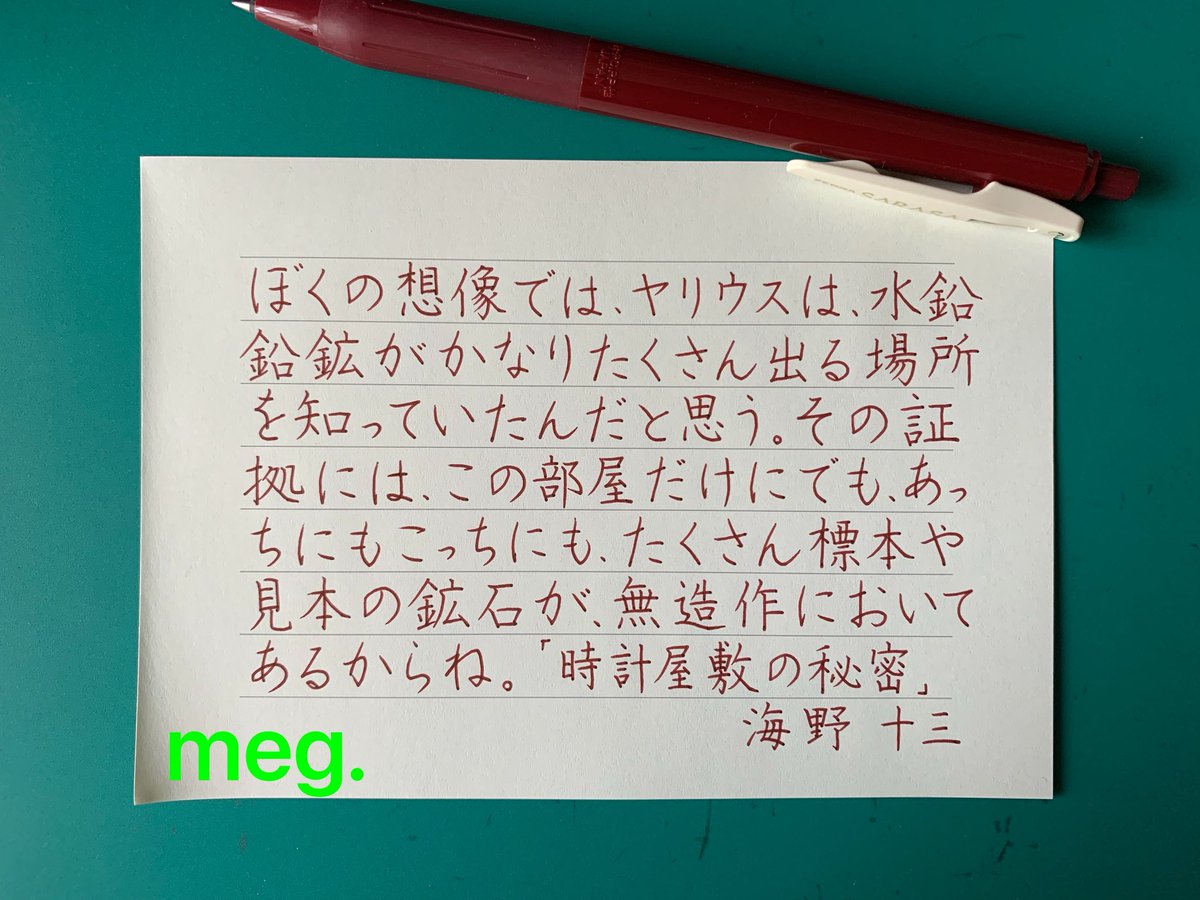 SARASA
ぼくの想像では、ヤリウスは、水鉛
鉛鉱がかなりたくさん出る場所
を知っていたんだと思う。その証
拠には、この部屋だけにでも、あっ
ちにもこっちにも、たくさん標本や
見本の鉱石が、無造作において
あるからね。「時計屋敷の秘密」
海野 十三
meg.